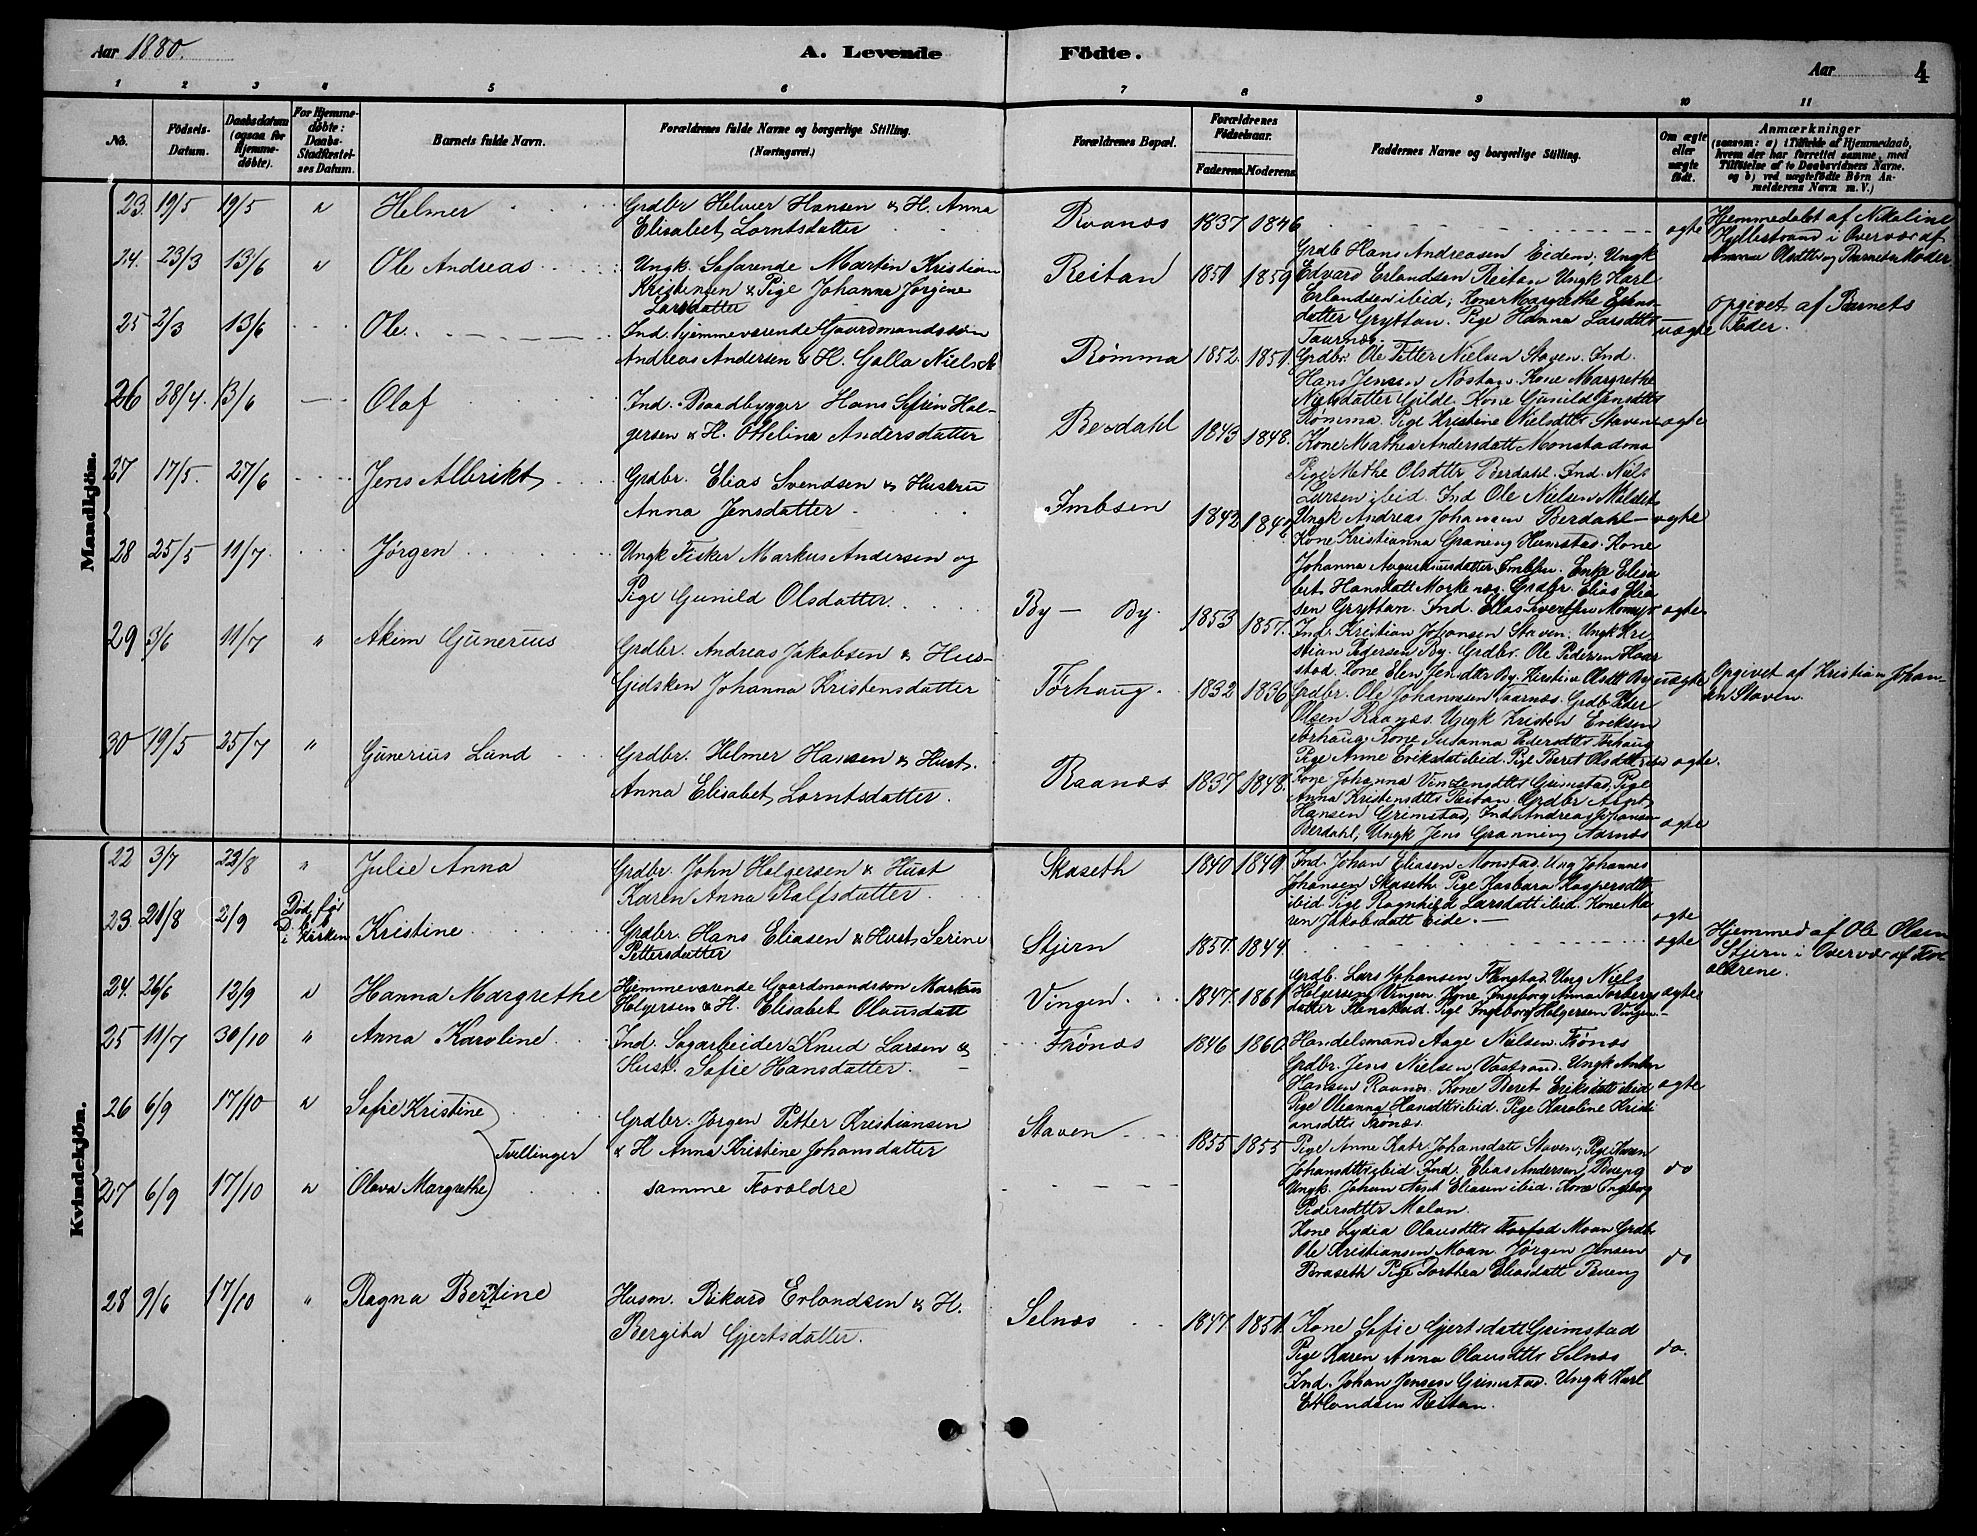 Aar 1880.
A. Levende Födte.
Aar
4
1 2 3 4 5 6 7 8 9 10 11
No.
Födsels-Datum.
Daabsdatum (ogsaa for Hjemme-döbte).
For Hjemme-döbte: Daabs-Stadfæstel-ses Datum.
Barnets fulde Navn.
Forældrenes fulde Navne og borgerlige Stilling.
(Næringsvei.)
Forældrenes Bopæl.
Forældrenes Födselsaar.
Faderens. Moderens.
Faddernes Navne og borgerlige Stilling.
Om ægte eller uægte födt.
Anmærkninger
(saasom: a) i Tilfælde af Hjemmedaab,
hvem der har forrettet samme, med
Tilföielse af to Daabsvidners Navne,
og b) ved uægtefödte Börn An-
melderens Navn m. V.)
Mandkjön.
23. 19/5 19/5 " Helmer
Grdbr Helmer Hansen & H. Anna
Elisabet Lorntsdatter
Raanæs 1837 1846
ægte
Hjemmedøbt af Nikoline
Hjellestrand i Overvær af
Olsdtr og Barnets Moder
24. 23/3 13/6 " Ole Andreas
Ungk. Søfarende Martin Kristian
Kristensen & Pige Johanna Jørgine
Larsdatter
Reitan 1851 1859
Grdb Hans Andreasen Eidem; Ungk
Edvard Erlandsen Reitan Ungk Karl
Erlandsen ibid; Kone Margrethe
datter Gryttan. Pige Hanna Larsdtr
Taarnæs
uægte
Opgivet af Barnets
Fader.
25 2/3 13/6 Ole
Ind. hjemmeværende Gaardmandssøn
Andreas Andersen & H. Golla Niels d
Rømma 1852. 1851
Grdbr. Ole Petter Nielsen Staven. Ind.
Hans Jensen Nøstan. Kone Margrethe
Nielsdatter Gilde. Kone Gunild Jensdtr
Rømma. Pige Kristine Nielsdtr Staven
ægte
26 28/4. 13/6 Olaf
Ind. Baadbygger Hans Sefrin Hol-
gersen & H. Othelina Andersdatter
Berdahl 1843 1848.
Kone Mathea Andersdatt Monstadmo
Pige Methe Olsdtr Berdahl. Ind. Niels
Larsen ibid. Ind Ole Nielsen
Ungk Andreas Johansen Berdahl
ægte
27 17/5. 27/6 Jens Albrikt
Grdbr. Elias Svendsen & Hustru
Anna Jensdatter
Imbsen 1842
Kone Kristianna Graneng Humstad. Kone
Johanna Augustinusdatter Imbsen. Enke Elisa
bet Hansdatt Morknæs. Grdbr. Elias Elia
sen Gryttan. Ind. Ellas
ægte
28 25/5 11/7. Jørgen
Ungk Fisker Markus Andersen og
Pige Gunild Olsdatter
By — By. 1853 1857.
Ind. Kristian Johansen Staven; Ungk Kri
stian Pedersen By. Grdbr. Ole Pedersen Haar
stad. Kone Elen Jensdtr By. Kirstine Olsdtt By
uægte
Opgivet af Kristian Johan-
sen Staven.
29 3/6 11/7 " Akem Gunerius
Grdbr. Andreas Jakobsen & Hus-
Gidsken Johanna Kristensdatter
Tørhaug. 1832 1836
Grdbr. Ole Johannesen Taarnæs. Grdb Peder
Olsen Raanæs. Ungk Kristen Eriksen
Tørhaug. Kone Susanna Pedersdtr Tørhaug
Pige Anne Eriksdat ibid. Pige Beret Olsdtt
ægte.
30 19/5 25/7 " Gunerius Lund
Grdbr. Helmer Hansen & Hust.
Anna Elisabet Lorntsdatter.
Raanæs 1837 1848.
Kone Johanna Vinzensdtr Grimstad. Pige
Anna Kristensdtr Reitan. Grdbr Arnt
Hansen Grimstad; Ind. Andreas Johansen
Berdahl; Ungk Jens Granning Aarnæs
ægte
Kvindekjön.
22 3/7 22/8 " Julie Anna
Grdbr. John Holgersen & Hust
Karen Anna Ralfsdatter
Skaseth 1840 1849
Ind. Johan Eliasen Monstad. Ung Johannes
Johansen Skaseth. Pige Kasbara Kaspersdtt
ibid Pige Ragnhild Larsdatt ibid. Kone Ma
ren Jakobsdatt Eide. —
ægte
23 21/8 2/9 Død før D. bek i Kirken Kristine
Grdbr. Hans Eliasen & Hust. Serine
Pettersdatter
Stjern 1857. 1844.
ægte
Hjemmed af Ole Olsen
Stjern i Overvær af For-
ældrene.
24. 26/6 12/9 " Hanna Margrethe
Hemmeværende Gaardmandssøn Markus
Holgersen & H. Elisabet Olausdatt
Vingen. 1847. 1861
Grdb. Lars Johansen Fangstad. Ung Niels
Holgersen Vingen. Kone Ingeborg Anna Torbergs
datter Stenstad. Pige Ingeborg Holgersen Vingen.
ægte
25 11/7 30/10 " Anna Karoline
Ind. Sagarbeider Knud Larsen &
Hust. Sofie Hansdatter.
Frønæs 1846 1860
Handelsmand Aage Nielsen. Frønæs
Grdbr. Jens Nielsen Vastrand. Ungk Anton
Hansen Raanæs. Kone Beret Eriksdatt ibid
Pige Olianna Hansdtr ibid. Pige Karoline Kristi
ansdtr Frønæs.
ægte
26 6/9 17/10 " Sofie Kristine
Tvillinger
Grdbr. Jørgen Petter Kristiansen
& H Anna Kristine Johansdatter
Staven 1855 1855
Pige Anne Katr. Johansdatt Staven; Pige Karen
Johansdtt ibid Ind. Elias Andersen Bueng
Ungk. Johan Arnt Eliasen ibid. Kone Ingeborg
Pedersdtr Melan.
do
27 6/9 17/10 " Olava Margrethe
samme Forældre
Kone Lydia Olausdtr Moan Grdb.
Ole Kristiansen Moan. Jørgen Jensen
Braseth Pige Dorthea Eliasdatt Bueng
do
28 9/6 17/10 " Ragna Berntine
Husm. Rikard Erlandsen & H.
Bergita Gjertsdatter.
Selnæs 1847. 1851
Kone Sofie Gjertsdatt Grimstad
Pige Karen Anna Olausdtr Selnæs
Ind. Johan Jensen Grimstad. Ungk Karl
Erlandsen Reitan.
do.